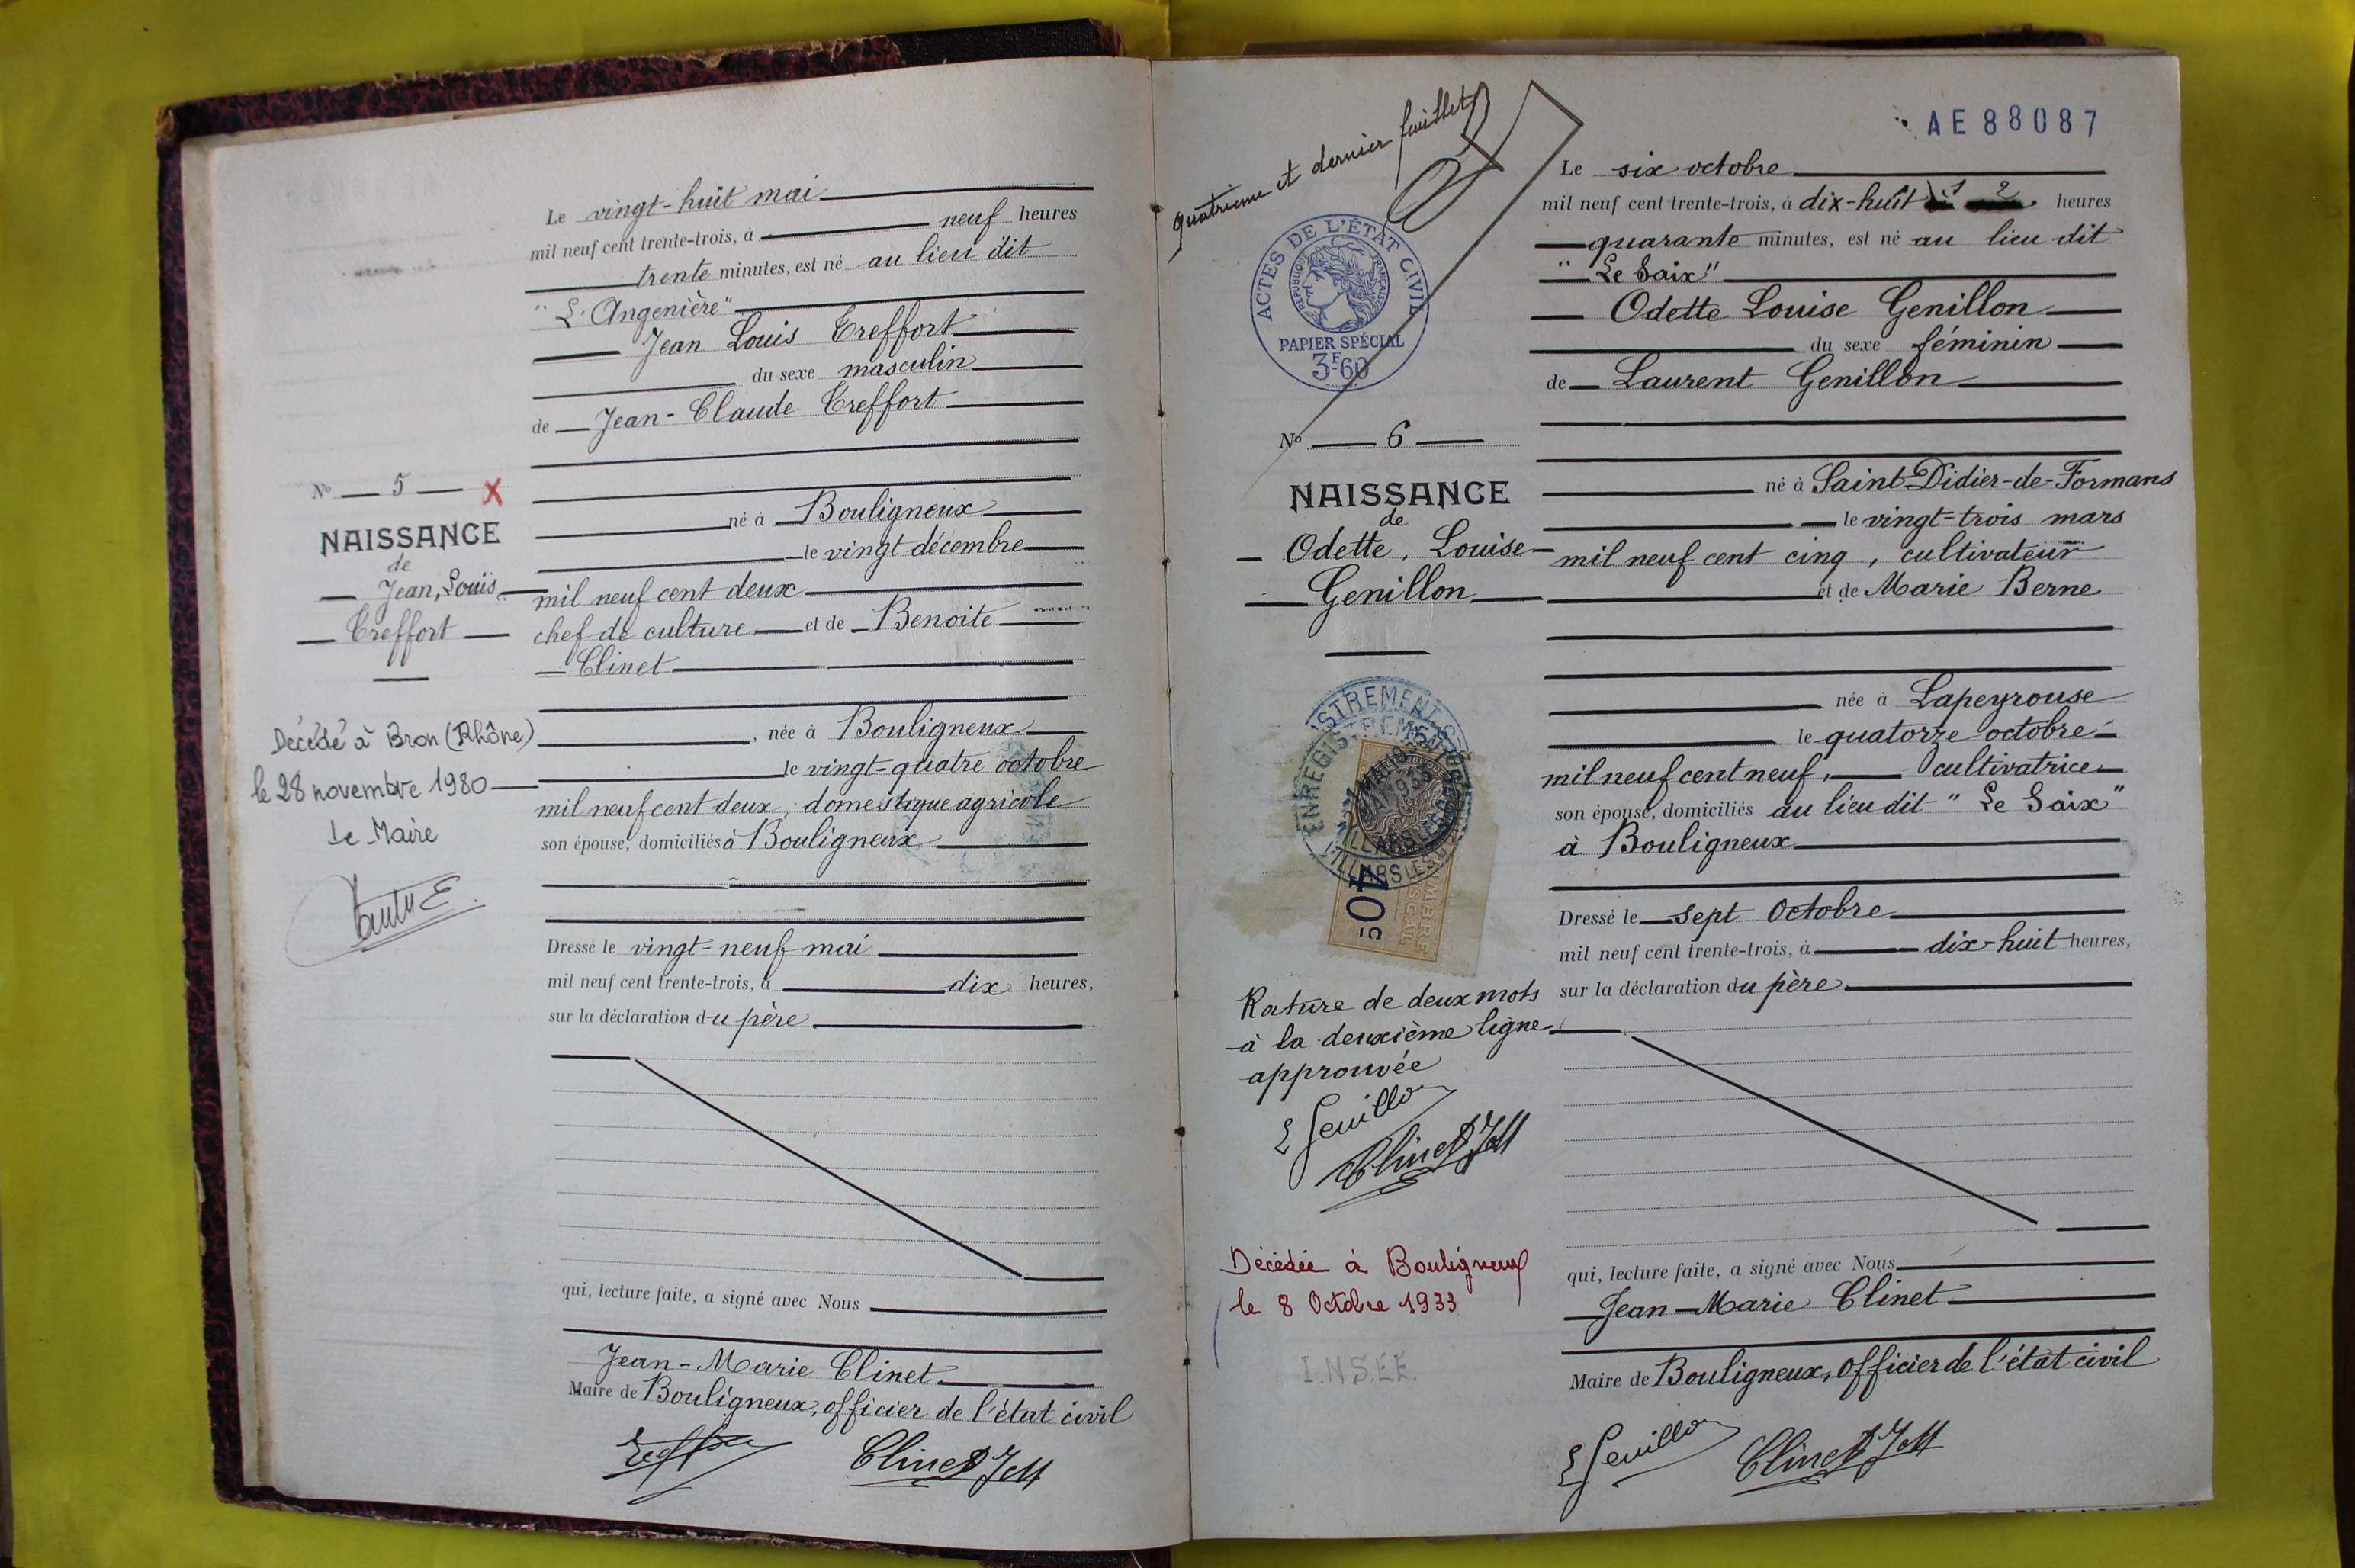 Le vingt-huit mai
mil neuf cent trente-trois, à neuf heures
trente minutes, est né au lieu dit
"L'Angenière"
Jean Louis Treffort
du sexe masculin
de Jean-Claude Treffort
né à Bouligneux
le vingt décembre
mil neuf cent deux
chef de culture et de Benoite
Clinet
, née à Bouligneux
le vingt-quatre octobre
mil neuf cent deux, domestique agricole
son épouse, domiciliés à Bouligneux
Dressé le vingt-neuf mai
mil neuf cent trente-trois, à dix heures,
sur la déclaration du père
qui, lecture faite, a signé avec Nous
Jean-Marie Clinet
Maire de Bouligneux, officier de l'état civil
Clinet JM
No 5 X
NAISSANCE
de
Jean, Louis
Treffort
Décédé à Bron (Rhône)
le 28 novembre 1980
Le Maire
quatrième et dernier feuillet
ACTES DE L'ÉTAT CIVIL
RÉPUBLIQUE FRANÇAISE
PAPIER SPÉCIAL
3F60
No 6
NAISSANCE
de
Odette, Louise
Genillon
ENREGISTREMENT
VILLARS LES
50
TIMBRE
FISCAL
Rature de deux mots
à la deuxième ligne
approuvée
Genillon
Clinet JM
Décédée à Bouligneux
le 8 Octobre 1933
I.N.S.E.E.
AE88087
Le six octobre
mil neuf cent trente-trois, à dix-huit heures
quarante minutes, est né au lieu dit
"Le Saix"
Odette Louise Genillon
du sexe féminin
de Laurent Genillon
né à Saint-Didier-de-Formans
le vingt-trois mars
mil neuf cent cinq, cultivateur
et de Marie Berne
née à Lapeyrouse
le quatorze octobre
mil neuf cent neuf, cultivatrice
son épouse, domiciliés au lieu dit "Le Saix"
à Bouligneux
Dressé le sept Octobre
mil neuf cent trente-trois, à dix-huit heures,
sur la déclaration du père
qui, lecture faite, a signé avec Nous
Jean-Marie Clinet
Maire de Bouligneux, Officier de l'état civil
Genillon Clinet JM